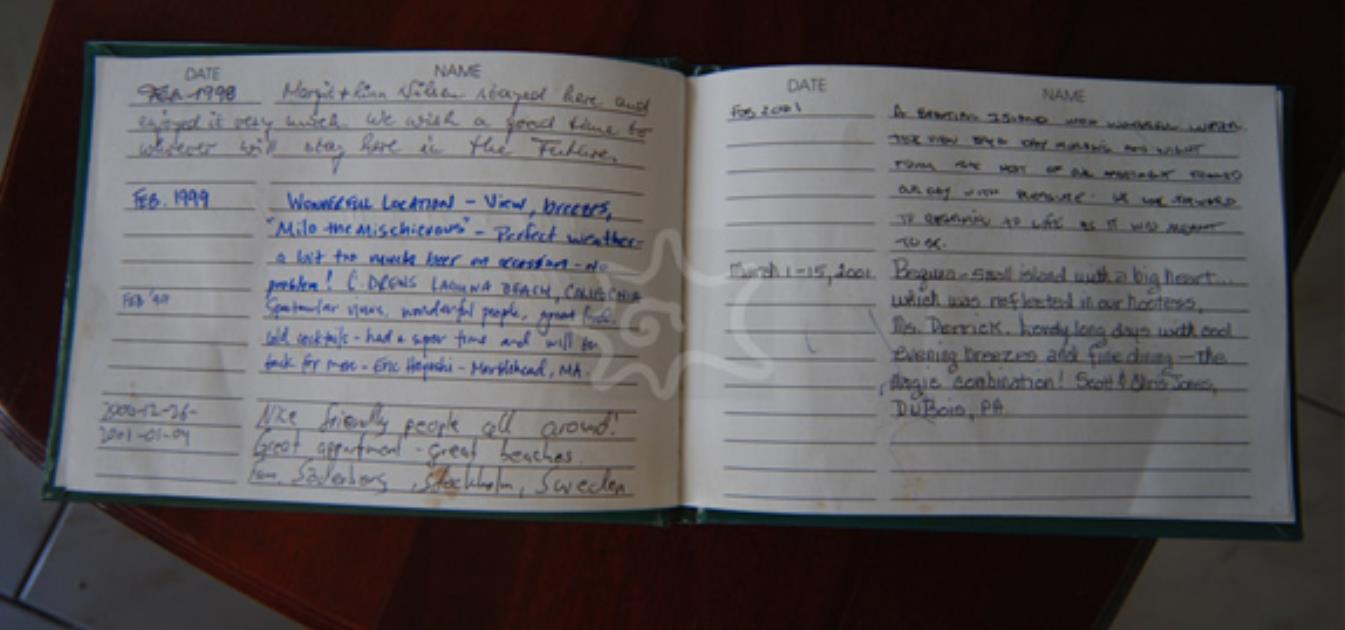 DATE NAME
FEB. 1998 Margit + Finn Nilsen stayed here and
enjoyed it very much. We wish a good time to
whoever will stay here in the Future.
FEB. 1999 WONDERFUL LOCATION - VIEW, breezes,
"Milo the Mischievous" - Perfect weather -
a bit too much beer on occasion - no
problem! C. DREWS LAGUNA BEACH, CALIFORNIA
FEB '99 Spectacular views, wonderful people, great food,
cold cocktails - had a super time and will be
back for more - Eric Hayashi - Marblehead, MA.
2000-12-26- Nice friendly people all around!
2001-01-04 Great appartment - great beaches.
Fam. Söderberg, Stockholm, Sweden
DATE NAME
Feb 2001 A BEAUTIFUL ISLAND WITH WONDERFUL
THE VIEW EACH DAY MORNING AND NIGHT
FROM THE
OUR DAY WITH PLEASURE. WE
TO RETURNING TO LIFE AS IT WAS MEANT
TO BE.
March 1-15, 2001 Bequia - small island with a big heart...
which was reflected in our hostess,
Ms. Derrick. Lovely long days with cool
evening breezes and fine dining - the
magic combination! Scott & Chris Jones,
DuBois, PA.